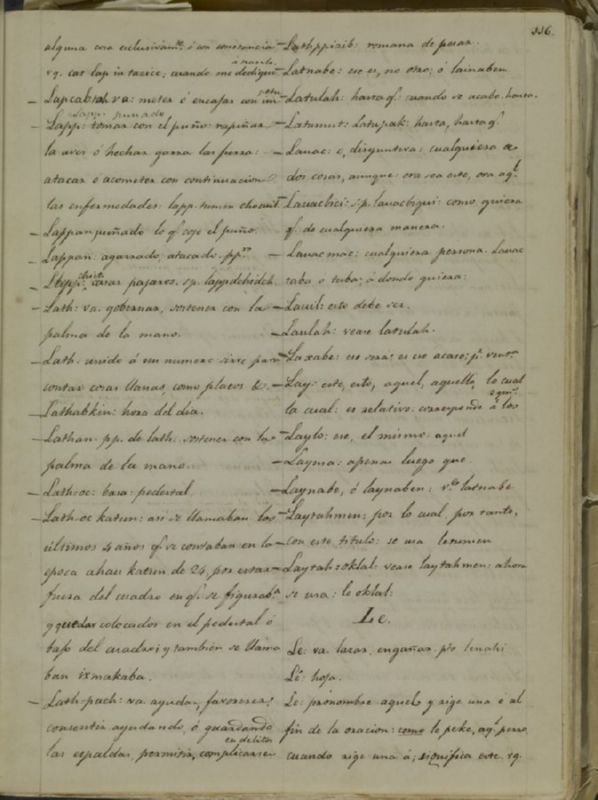 336.
alguna cosa exclusivam.te ó con
vg. cat lap in tazice, cuando me
Lapcabtah va: meter ó encajar con
Lapp: tomar con el puño: rapiñar
la aves ó hechar garra las fieras:
atacar ó acometer con continuacion
las enfermedades: lapp
Lappan puñado lo q.e coje el puño.
Lappan. agarrado, atacado. pp.
cazar pajaros. sp. lappchichich
Lath: va. gobernar, sostener con la
palma de la mano.
Lath. unido á un numero sirve para
contar cosas llanas, como platos &.
Lathabkin: hora del dia.
Lathan. pp. de lath. sostener con la
palma de la mano.
Lath-oc: basa: pedestal
Lath-oc katun: asi se llamaban los
últimos 4 años q.e se contaban en la
epoca ahau katun de 24, por estar
fuera del cuadro en q.e se figuraba
y quedar colocados en el pedestal ó
bajo del cuadro; y también se llama
ban ixmakaba.
Lath-pach: va. ayudar, favorecer;
consentir ayudando, ó guardando
en delitos
las espaldas, permitir, complicarse
Lathppizib: romana de pesar.
Latnabe: eso es, no otro; ó lainaben
Latulah: harta q.e cuando se acabe. harta.
Latumut: latupak: harta, harta q.e
Lauac: e, disyuntiva: cualquiera de
dos cosas, aunque: ora sea este, ora aq.l
Lauacbici: s.p. lauacbiqui: como quiera
q.e de cualquiera manera.
Lauacmac: cualquiera persona. lauac
taba ó tuba; á donde quiera:
Lauil: esto debe ser.
Laulah: vease latulah.
Laxabe: eso sera: es eso acaso; p.r
Lay: este, esto, aquel, aquello, lo cual
la cual: es relativo. corresponde á los
Laylo: ese, el mismo. aquel
Layma: apenas luego que.
Laynabe, ó laynaben: v.e latnabe
Laytahmen: por lo cual, por tanto,
con este titulo: se usa lemen
Laytah: oklal: vease laytahmen: ahora
se usa: le oklal:
Le.
Le: va. lazar, engañar. pto lenahi
Lè: hoja.
Le: pronombre aquel y rige una é al
fin de la oracion: como le peke, aq.l perro
cuando rige una á; significa este. vg.